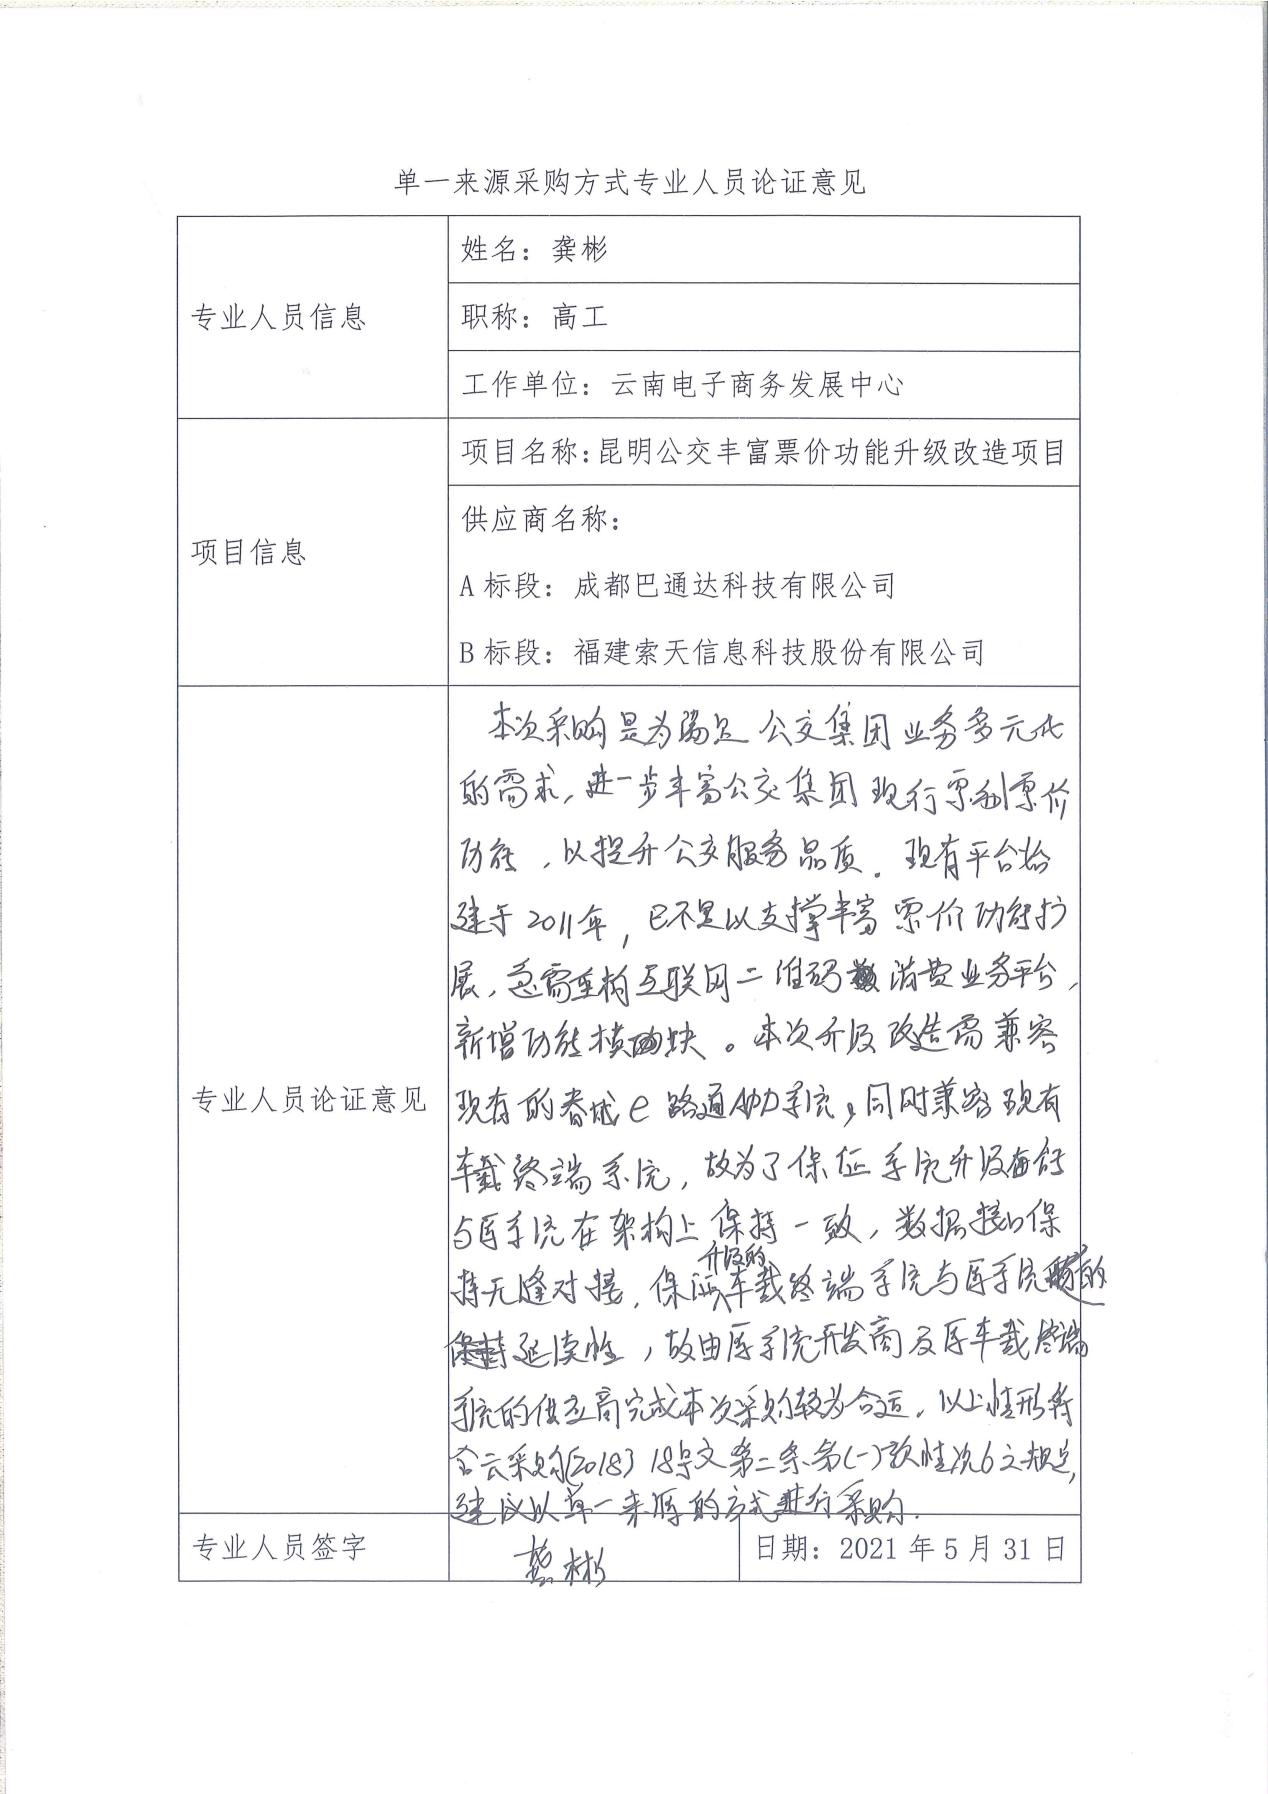 单一来源采购方式专业人员论证意见
专业人员信息
姓名：龚彬
职称：高工
工作单位：云南电子商务发展中心
项目信息
项目名称：昆明公交丰富票价功能升级改造项目
供应商名称：
A 标段：成都巴通达科技有限公司
B 标段：福建索天信息科技股份有限公司
专业人员论证意见
本次采购是为满足公交集团业务多元化
的需求，进一步丰富公交集团现行票制票价
功能，以提升公交服务品质。现有平台始
建于2011年，已不足以支撑丰富票价功能扩
展，急需重构互联网二维码消费业务平台，
新增功能模块。本次升级改造需兼容
现有的春城e路通APP系统，同时兼容现有
车载终端系统，故为了保证系统升级后能
与原系统在架构上保持一致，数据接口保
持无缝对接，保证升级的车载终端系统与原系统的
延续性，故由原系统开发商及原车载终端
系统的供应商完成本次采购较为合适。以上情形符
合云采购(2018)18号文第二条第(一)款情况6之规定，
建议以单一来源的方式进行采购.
专业人员签字
龚彬
日期：2021 年 5 月 31 日